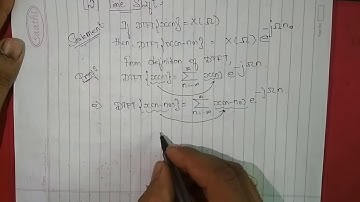 Time Shift:
Statement If DTFT{x(n)} = X(Ω)
then, DTFT{x(n-n₀)} = X(Ω) e^{-jΩn₀}
Proof from definition of DTFT,
DTFT{x(n)} = ∑_{n=-∞}^{∞} x(n) e^{-jΩn}
DTFT{x(n-n₀)} = ∑_{n=-∞}^{∞} x(n-n₀) e^{-jΩn}